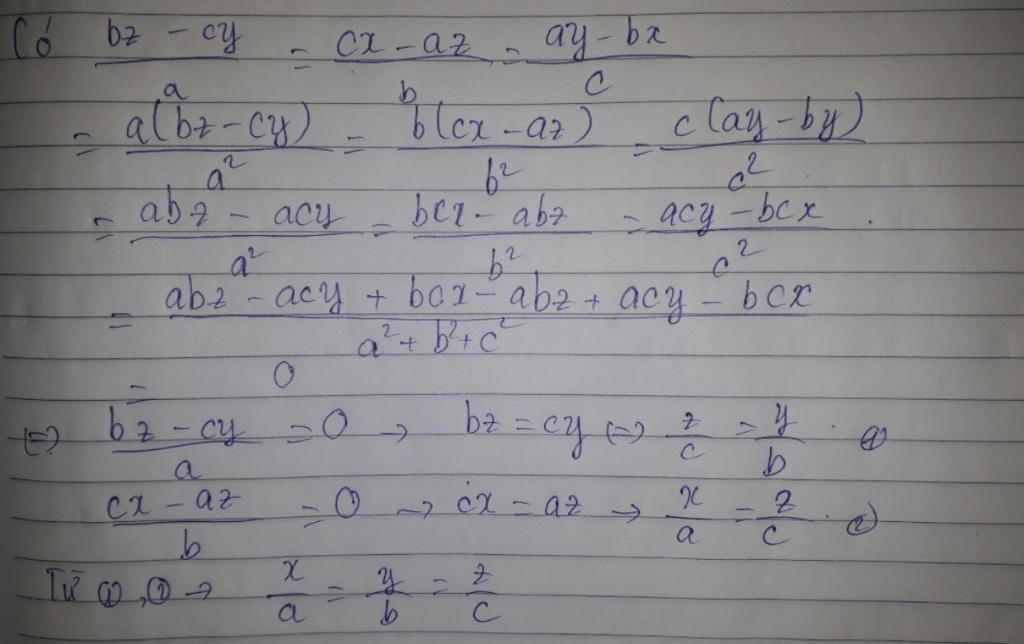 Có (bz - cy)/a = (cx - az)/b = (ay - bx)/c
= a(bz - cy)/a² = b(cx - az)/b² = c(ay - by)/c²
= (abz - acy)/a² = (bcx - abz)/b² = (acy - bcx)/c²
= (abz - acy + bcx - abz + acy - bcx)/(a² + b² + c²)
= 0
(=) (bz - cy)/a = 0 → bz = cy (=) z/c = y/b. ①
(cx - az)/b = 0 → cx = az → x/a = z/c. ②
Từ ①, ② → x/a = y/b = z/c